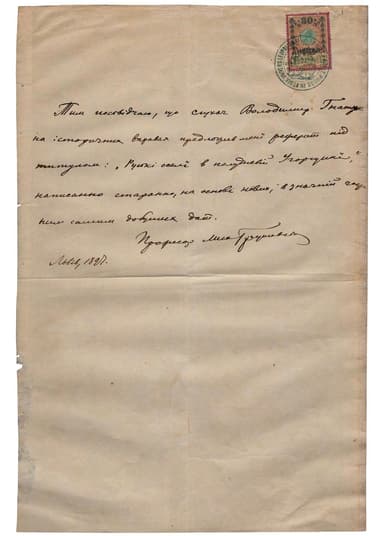 80
Тим посвідчаю, що слухач Володимир Гнатюк
на історичних вправах предложив мені реферат під
титулом: „Руські оселі в полудневій Угорщині,"
написаний старанно, на основі нових, в значній час
ним самим добутих дат.
Професор Мих Грушевський
Львів, 1897.